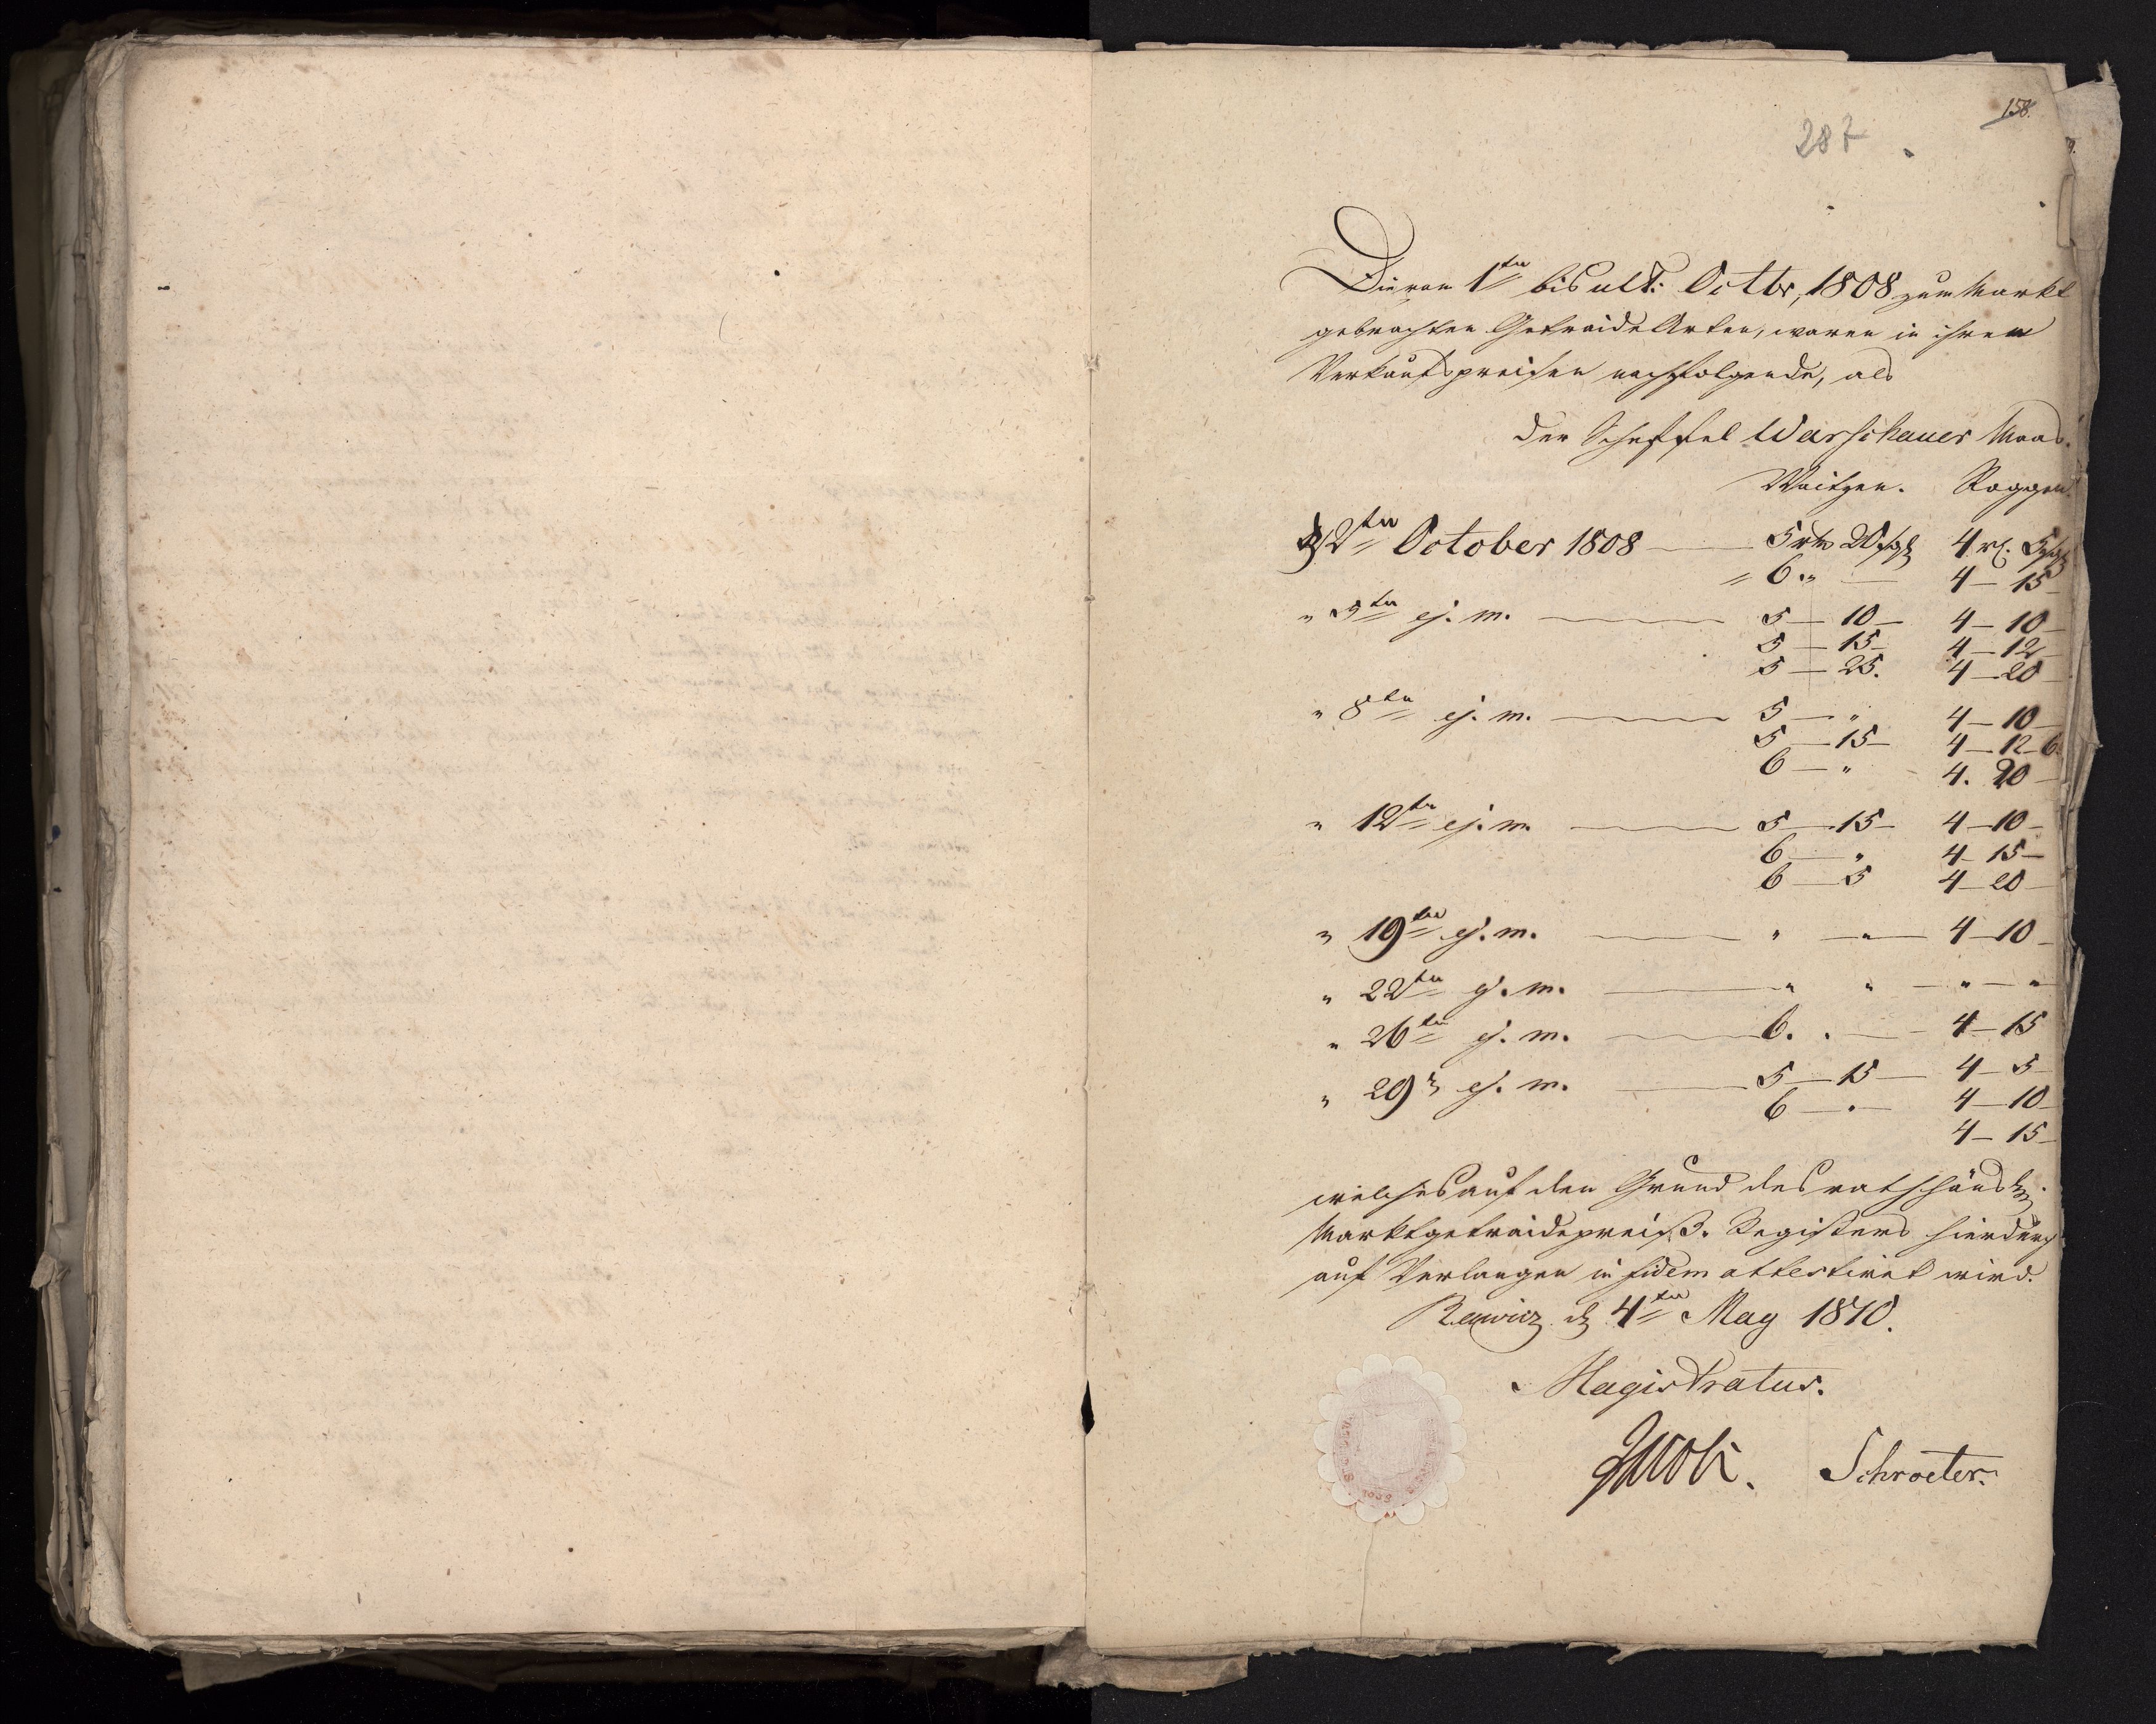 158.
287
Die vom 1ten bis ult: Octbr, 1808 zum Markt
gebrachten Getraide Arten, waren in ihren
Verkaufspreisen nachfolgende, als
der Scheffel Warschauer Maas.
Waitzen. Roggen.
2ten October 1808 — 5 rtr 20 sgl 4 rl. 5 sgl
" 6 " — 4 — 15 —
" 5ten ej. m. — 5 — 10 — 4 — 10 —
5 — 15 — 4 — 12 —
5 — 25. 4 — 20 —
" 8ten ej. m. — 5 — " 4 — 10 —
5 — 15 — 4 — 12 — 6.
6 — " 4. 20 —
" 12ten ej. m. — 5 — 15 — 4 — 10 —
6 — " 4 — 15 —
6 — 5 4 — 20 —
" 19ten ej. m. — " — " — 4 — 10 —
" 22ten ej. m. — " " — " — "
" 26ten ej. m. — 6. . — 4 — 15
" 29 ej. m. — 5 — 15 — 4 — 5 —
6 — " — 4 — 10 —
4 — 15 —
welches auf den Grund des rathhäusl.
Marktgetraidepreiß. Registers hierdurch
auf Verlangen in fidem attestiret wird.
Rawicz d 4ten May 1810.
Magistratus.
Schroeter.